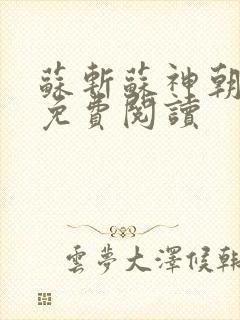 蘇斬蘇神朝
免費閱讀
雲夢大澤候朝